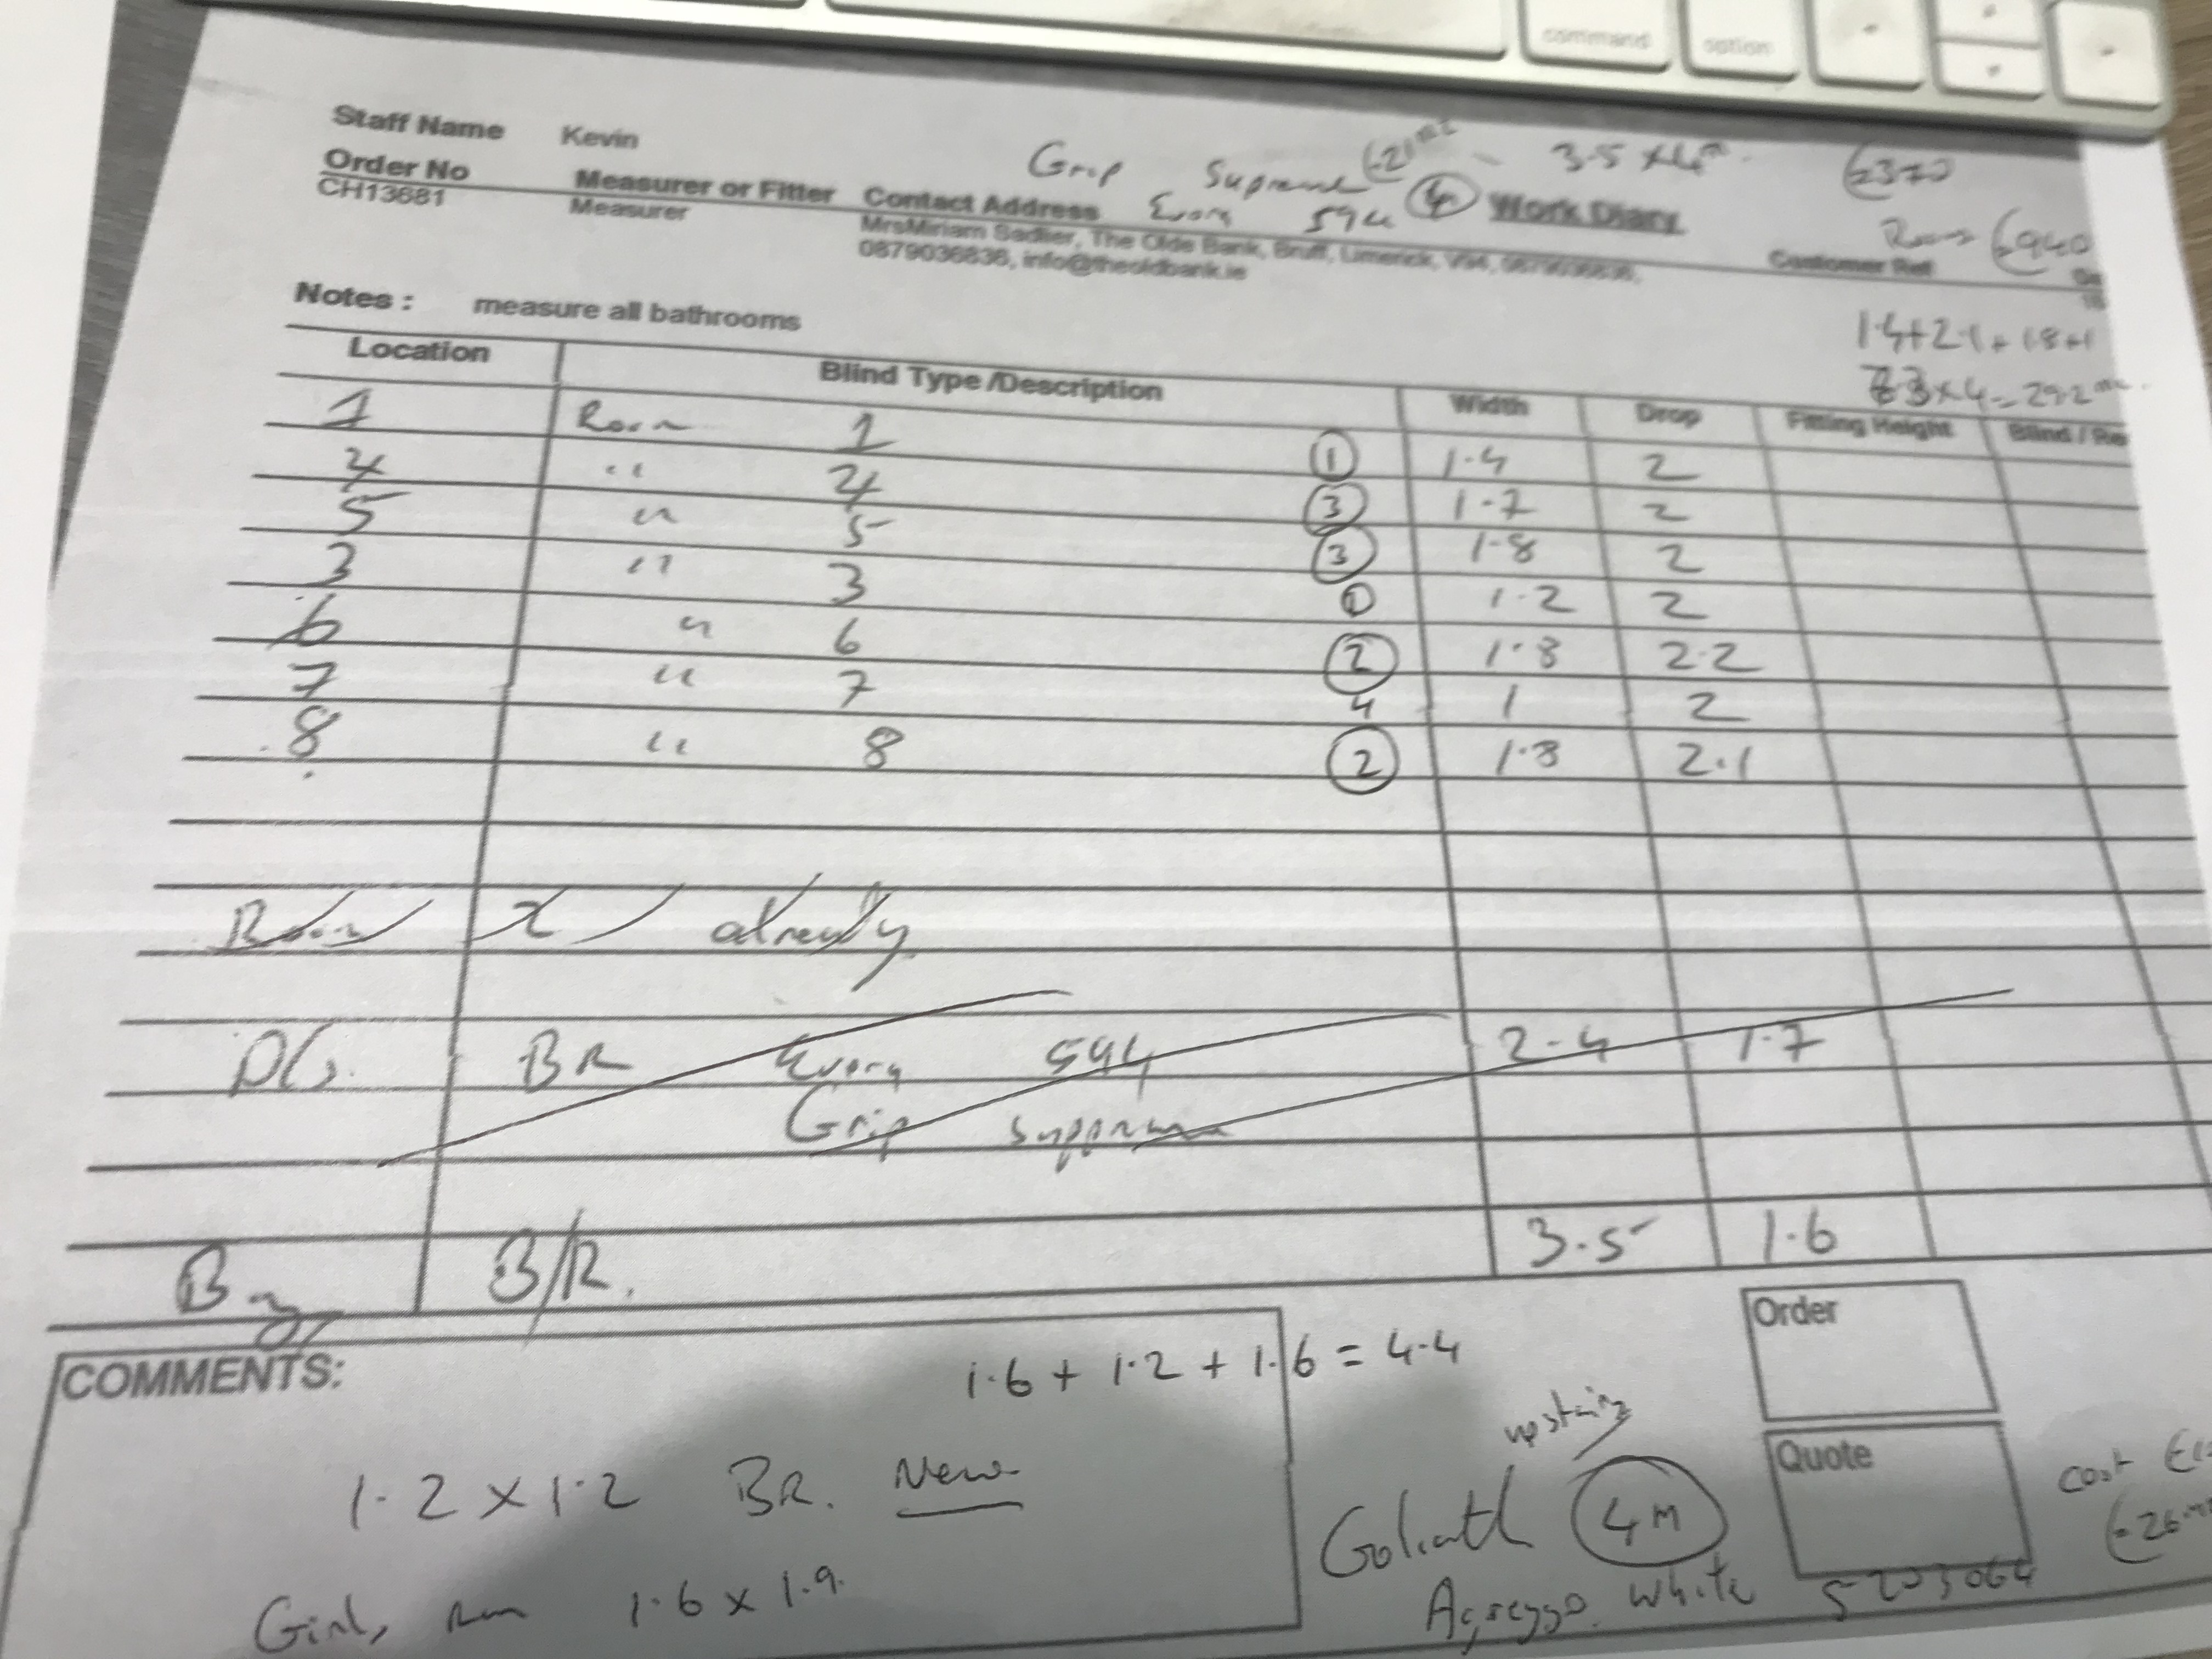 command option
Staff Name Kevin
Grip Supreme €21 m2 - 3.5 x 4
Order No Measurer or Fitter Contact Address Evora 594 4m Work Diary
CH13681 Measurer MrsMiriam Sadlier, The Olde Bank, Bruff, Limerick, V94,
0879036836, info@theoldbank.ie
Customer Ref
Rooms €940
Notes : measure all bathrooms
1.4+2.1+1.8+1
7.3x4=29.2
Location Blind Type /Description Width Drop Fitting Height Blind / Re
1 Room 1 ① 1.4 2
4 " 4 ③ 1.7 2
5 " 5 ③ 1.8 2
3 " 3 ① 1.2 2
6 " 6 ② 1.8 2.2
7 " 7 4 1 2
8 " 8 ② 1.8 2.1
already
BR Evora 594 2.4 1.7
Grip
B/R. 3.5 1.6
COMMENTS:
1.6 + 1.2 + 1.6 = 4.4
Order
upstairs
1.2 x 1.2 BR. New
Goliath 4M
Quote
cost
Girls 1.6 x 1.9
White